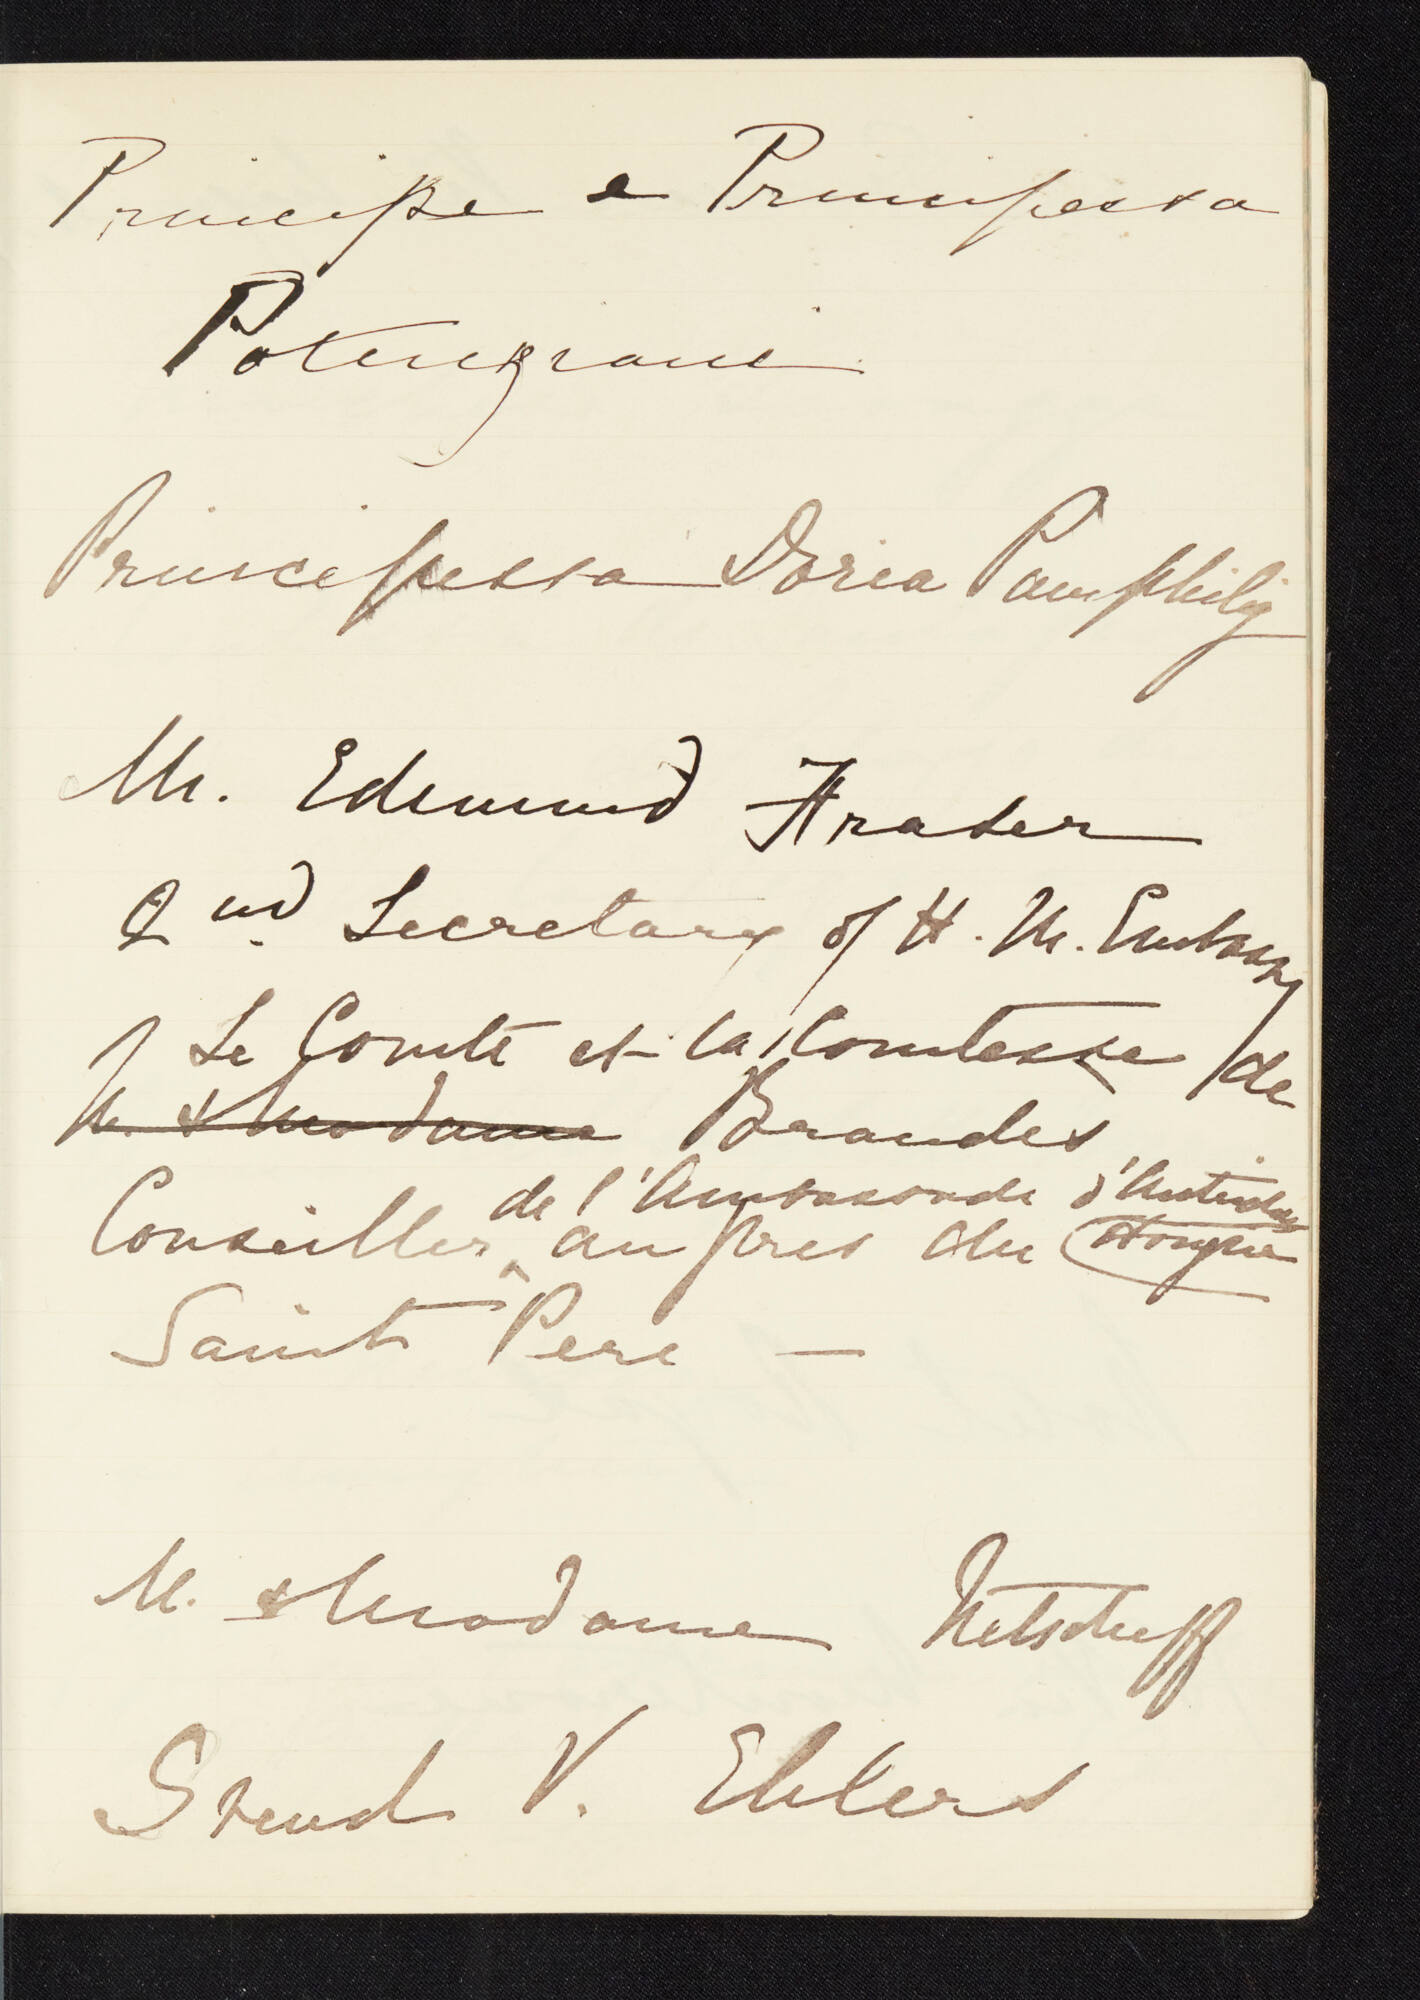 Principe e Principessa
Potenziani
Principessa Doria Pamphilj
Mr. Edmund Fraser
2nd Secretary of H. M. Embassy
Le Comte et la Comtesse de
M. & Madame Brandes
de l'Ambassade d'Autriche
Conseiller ^ au pres du Hongrie
Saint Pere —
M. & Madame Netscheff
Svend V. Ehlers